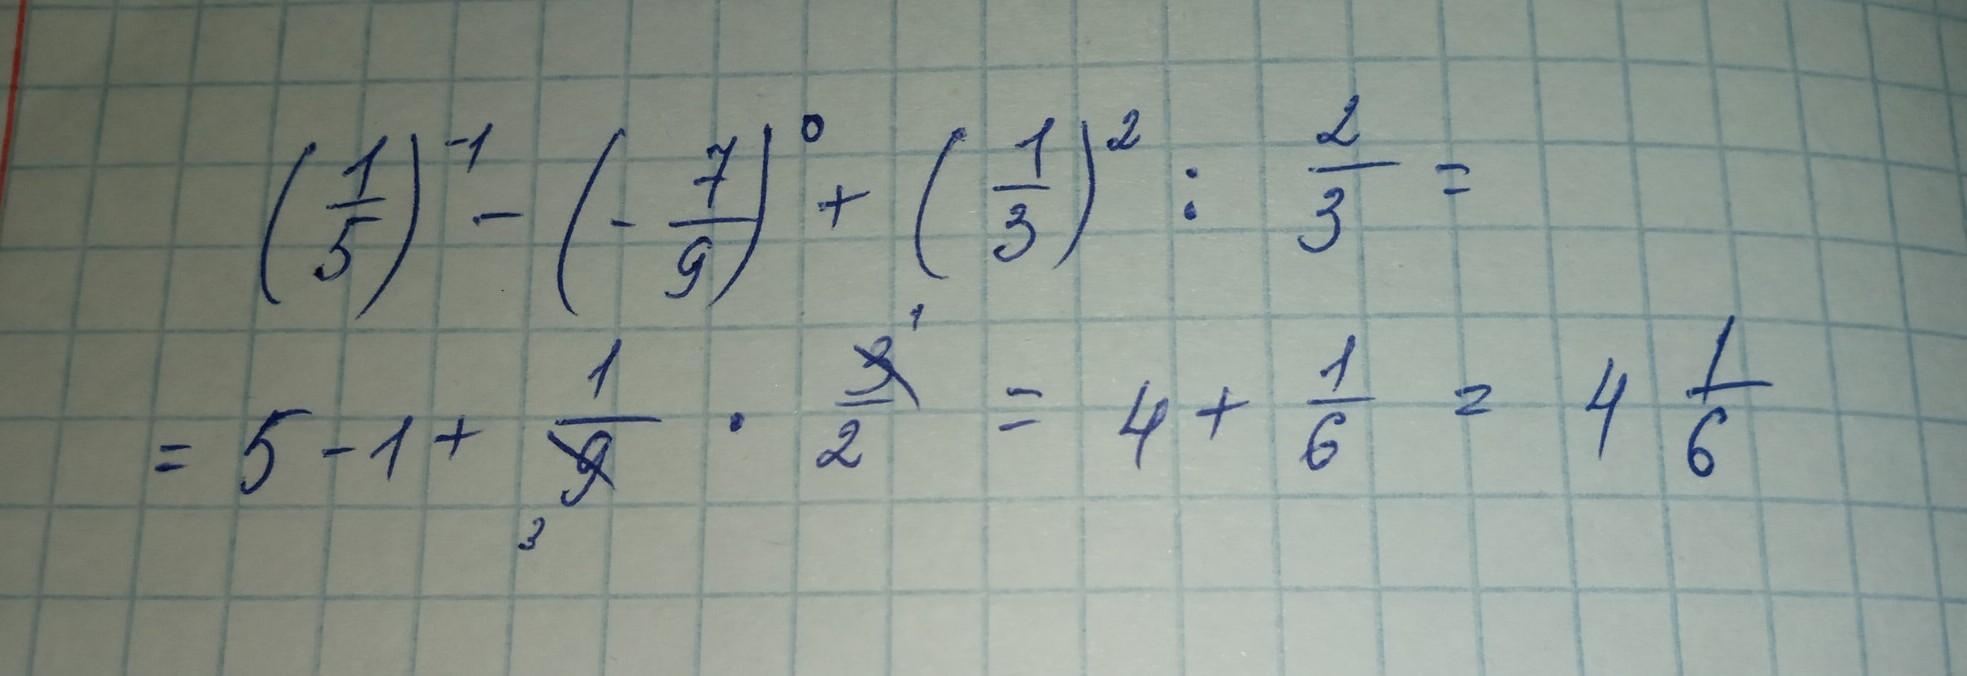 (1/5)^-1 - (-7/9)^0 + (1/3)^2 : 2/3 =
= 5 - 1 + 1/9 3 · 3/2 1 = 4 + 1/6 = 4 1/6